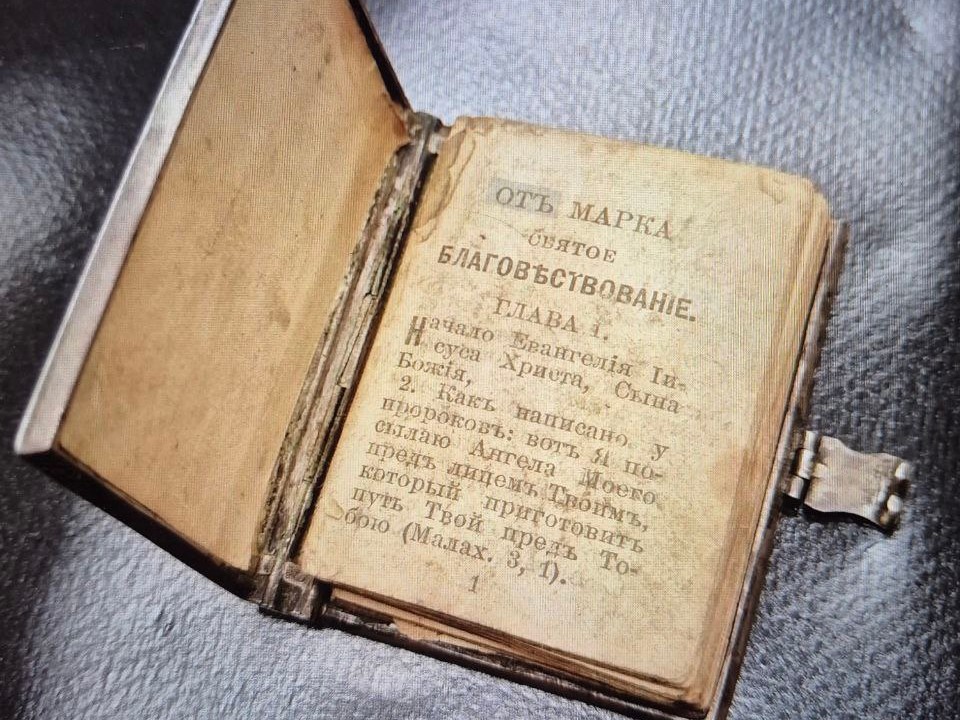 ОТЪ МАРКА
СВЯТОЕ
БЛАГОВѢСТВОВАНІЕ.
ГЛАВА 1.
Начало Евангелія Іи-
суса Христа, Сына
Божія,
2. Какъ написано у
пророковъ: вотъ Я по-
сылаю Ангела Моего
предъ лицемъ Твоимъ,
который приготовитъ
путь Твой предъ То-
бою (Малах. 3, 1).
1